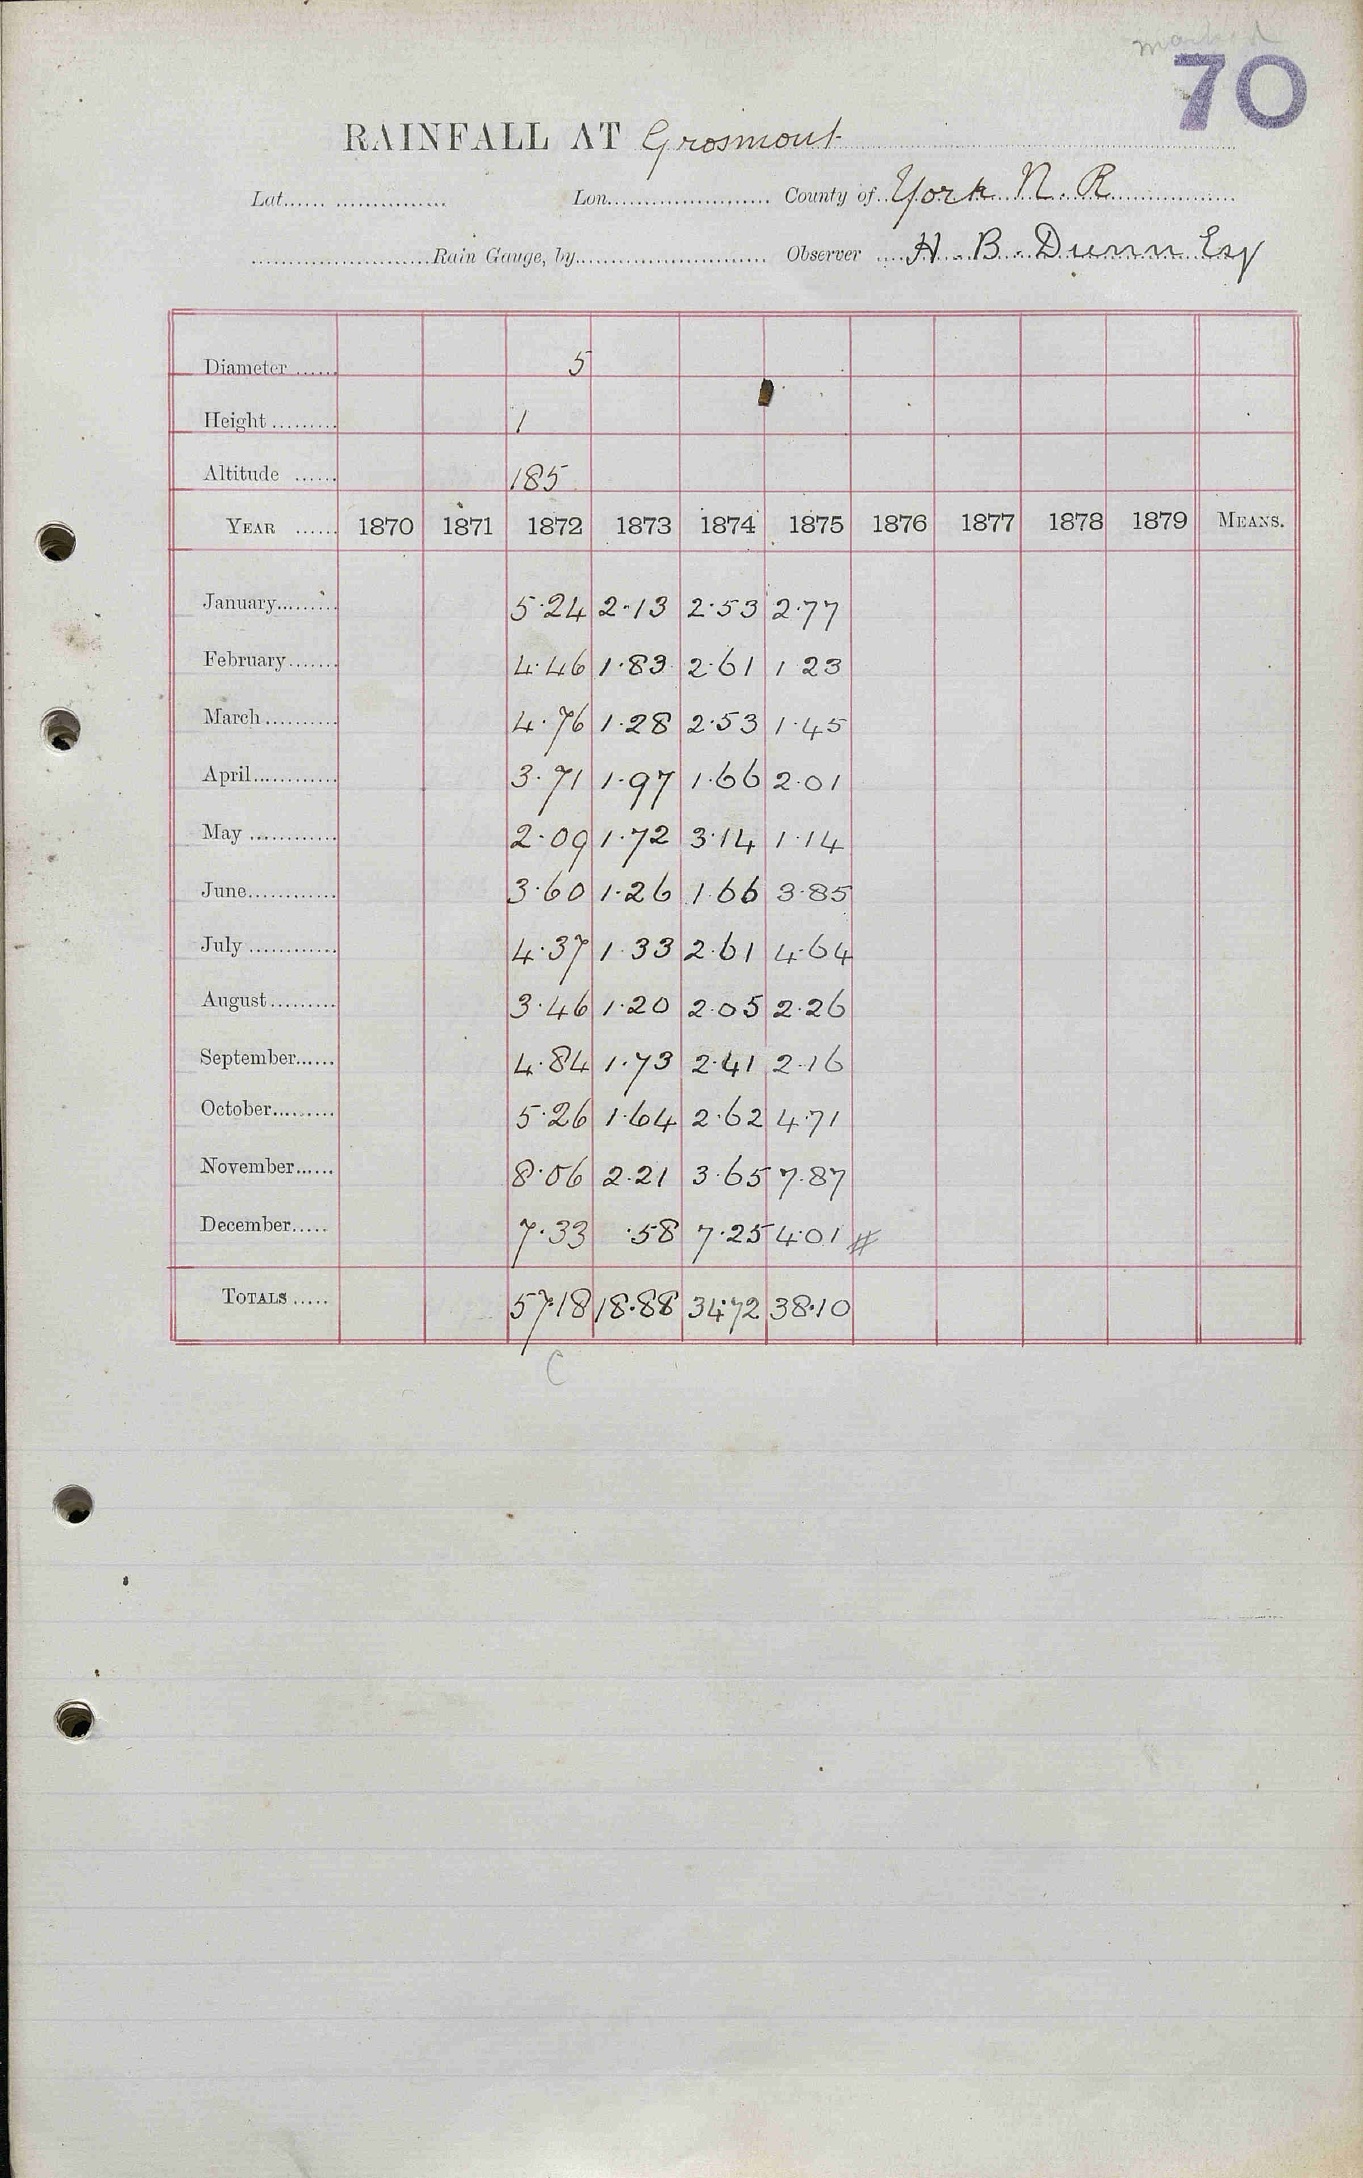 marked
70
RAINFALL AT Grosmont
Lat. Lon. County of York N. R
Rain Gauge, by Observer H. B. Dunn Esq
Diameter 5
Height 1
Altitude 185
YEAR 1870 1871 1872 1873 1874 1875 1876 1877 1878 1879 MEANS.
January 5.24 2.13 2.53 2.77
February 4.46 1.83 2.61 1 23
March 4.76 1.28 2.53 1.45
April 3.71 1.97 1.66 2.01
May 2.09 1.72 3.14 1.14
June 3.60 1.26 1.66 3.85
July 4.37 1.33 2.61 4.64
August 3.46 1.20 2.05 2.26
September 4.84 1.73 2.41 2.16
October 5.26 1.64 2.62 4.71
November 8.06 2.21 3.65 7.87
December 7.33 .58 7.25 4.01 #
TOTALS 57.18 18.88 34.72 38.10
C